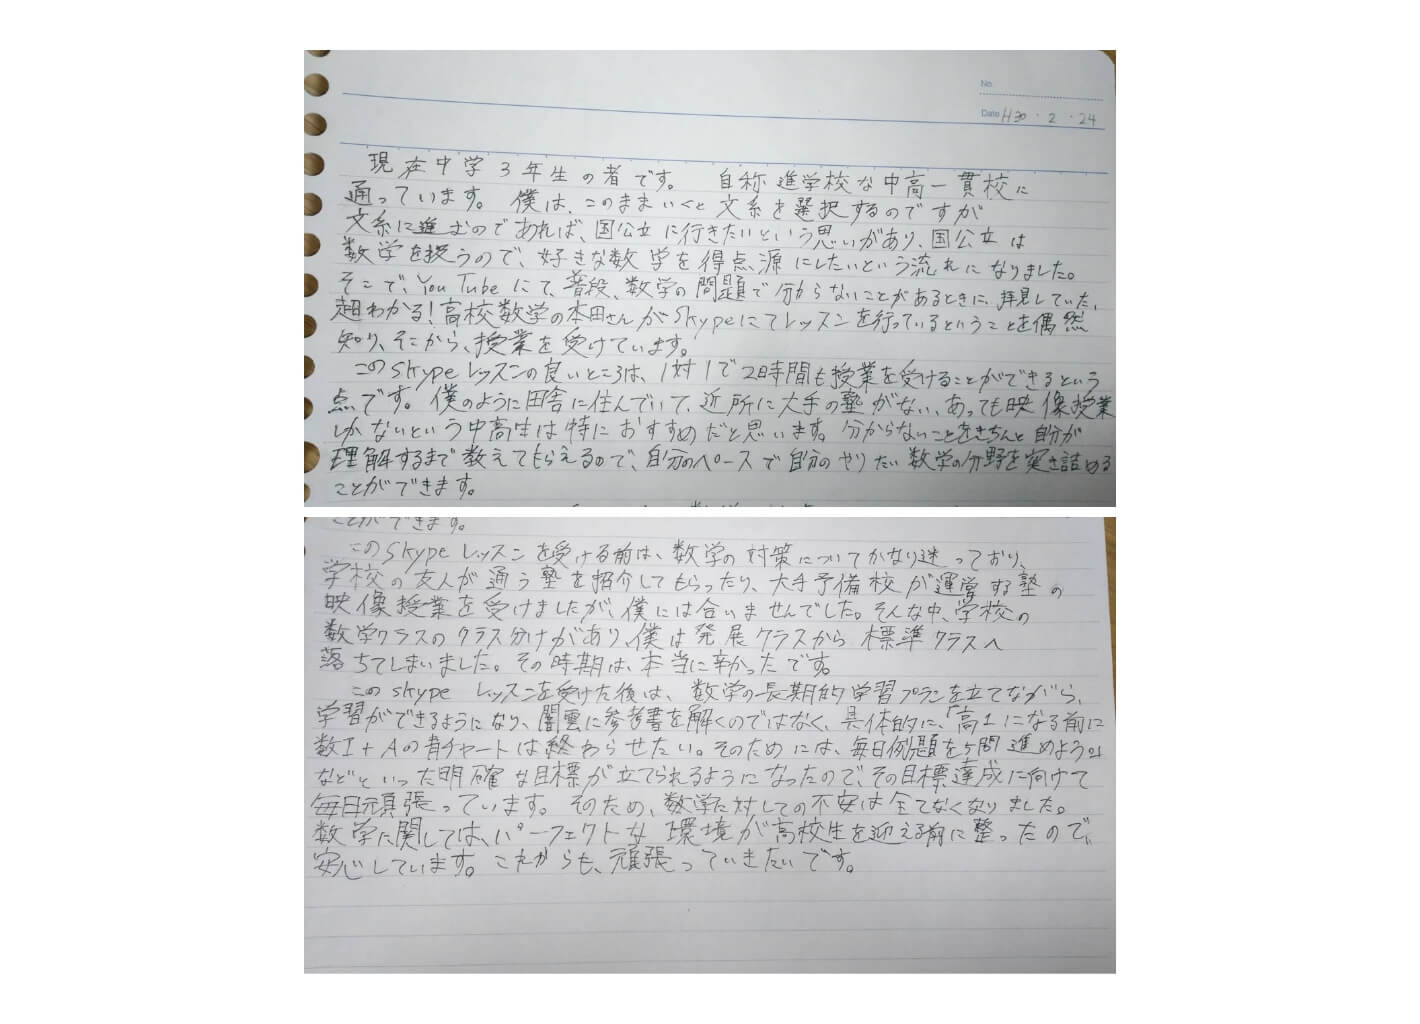 No.
Date H30・2・24
現在中学3年生の者です。 自称進学校な中高一貫校に
通っています。僕は、このままいくと文系を選択するのですが
文系に進むのであれば、国公立に行きたいという思いがあり、国公立は
数学を扱うので、好きな数学を得点源にしたいという流れになりました。
そこで、YouTubeにて、普段、数学の問題で分からないことがあるときに、拝見していた、
超わかる!高校数学の本田さんがSkypeにてレッスンを行っているということを偶然
知り、そこから、授業を受けています。
このSkypeレッスンの良いところは、1対1で2時間も授業を受けることができるという
点です。僕のように田舎に住んでいて、近所に大手の塾がない、あっても映像授業
しかないという中高生は特におすすめだと思います。分からないことをきちんと自分が
理解するまで教えてもらえるので、自分のペースで自分のやりたい数学の分野を突き詰める
ことができます。
ことができます。
このSkypeレッスンを受ける前は、数学の対策についてかなり迷っており、
学校の友人が通う塾を紹介してもらったり、大手予備校が運営する塾の
映像授業を受けましたが、僕には合いませんでした。そんな中、学校の
数学クラスのクラス分けがあり、僕は発展クラスから標準クラスへ
落ちてしまいました。その時期は、本当に辛かったです。
このskypeレッスンを受けた後は、数学の長期的学習プランを立てながら、
学習ができるようになり、闇雲に参考書を解くのではなく、具体的に、「高1になる前に
数I+Aの青チャートは終わらせたい。そのためには、毎日例題を5問進めよう。」
などといった明確な目標が立てられるようになったので、その目標達成に向けて
毎日頑張っています。そのため、数学に対しての不安は全てなくなりました。
数学に関しては、パーフェクトな環境が高校生を迎える前に整ったので、
安心しています。これからも、頑張っていきたいです。